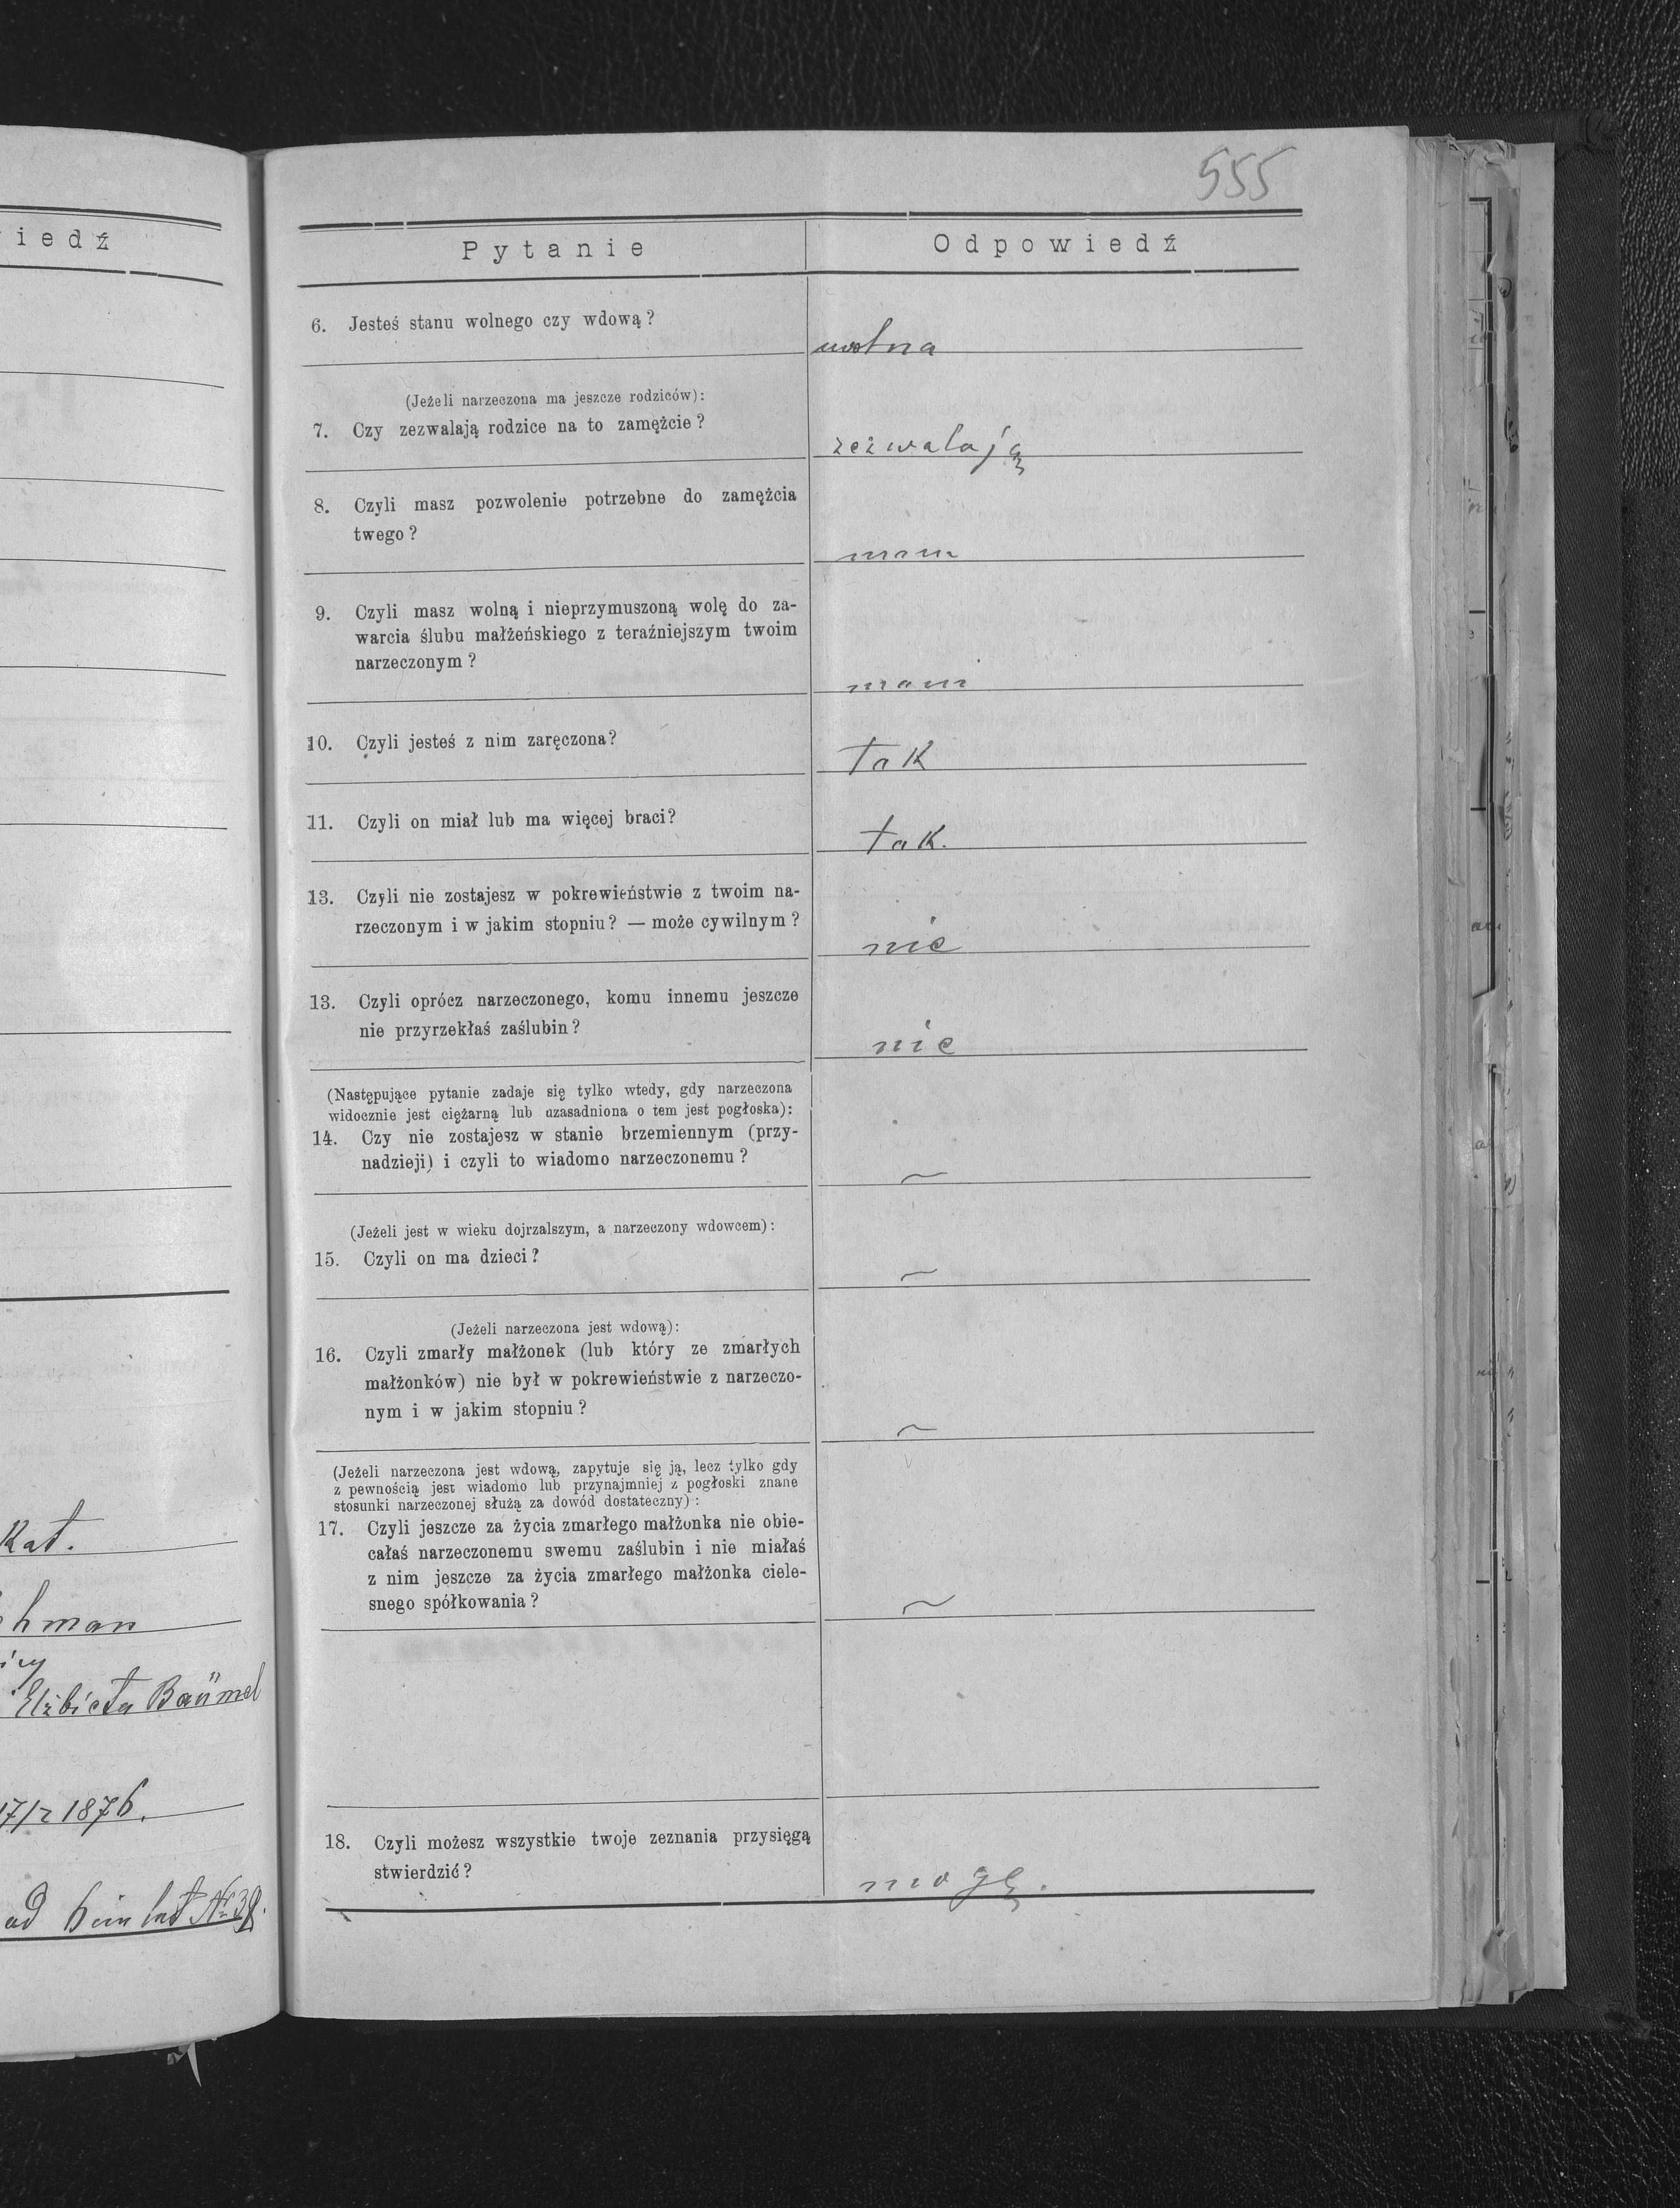 iedź
Kat.
hman
Elżbieta Baümel
17/2 1876.
od
555
Pytanie
Odpowiedź
6. Jesteś stanu wolnego czy wdową?
wolna
(Jeżeli narzeczona ma jeszcze rodziców):
7. Czy zezwalają rodzice na to zamężcie?
zezwalają
8. Czyli masz pozwolenie potrzebne do zamężcia
twego?
mam
9. Czyli masz wolną i nieprzymuszoną wolę do za-
warcia ślubu małżeńskiego z teraźniejszym twoim
narzeczonym?
mam
10. Czyli jesteś z nim zaręczona?
tak
11. Czyli on miał lub ma więcej braci?
tak.
13. Czyli nie zostajesz w pokrewieństwie z twoim na-
rzeczonym i w jakim stopniu? — może cywilnym?
nie
13. Czyli oprócz narzeczonego, komu innemu jeszcze
nie przyrzekłaś zaślubin?
nie
(Następujące pytanie zadaje się tylko wtedy, gdy narzeczona
widocznie jest ciężarną lub uzasadniona o tem jest pogłoska):
14. Czy nie zostajesz w stanie brzemiennym (przy-
nadzieji) i czyli to wiadomo narzeczonemu?
~
(Jeżeli jest w wieku dojrzalszym, a narzeczony wdowcem):
15. Czyli on ma dzieci?
~
(Jeżeli narzeczona jest wdową):
16. Czyli zmarły małżonek (lub który ze zmarłych
małżonków) nie był w pokrewieństwie z narzeczo-
nym i w jakim stopniu?
~
(Jeżeli narzeczona jest wdową, zapytuje się ją, lecz tylko gdy
z pewnością jest wiadomo lub przynajmniej z pogłoski znane
stosunki narzeczonej służą za dowód dostateczny):
17. Czyli jeszcze za życia zmarłego małżonka nie obie-
całaś narzeczonemu swemu zaślubin i nie miałaś
z nim jeszcze za życia zmarłego małżonka ciele-
snego spółkowania?
~
18. Czyli możesz wszystkie twoje zeznania przysięgą
stwierdzić?
mogę.